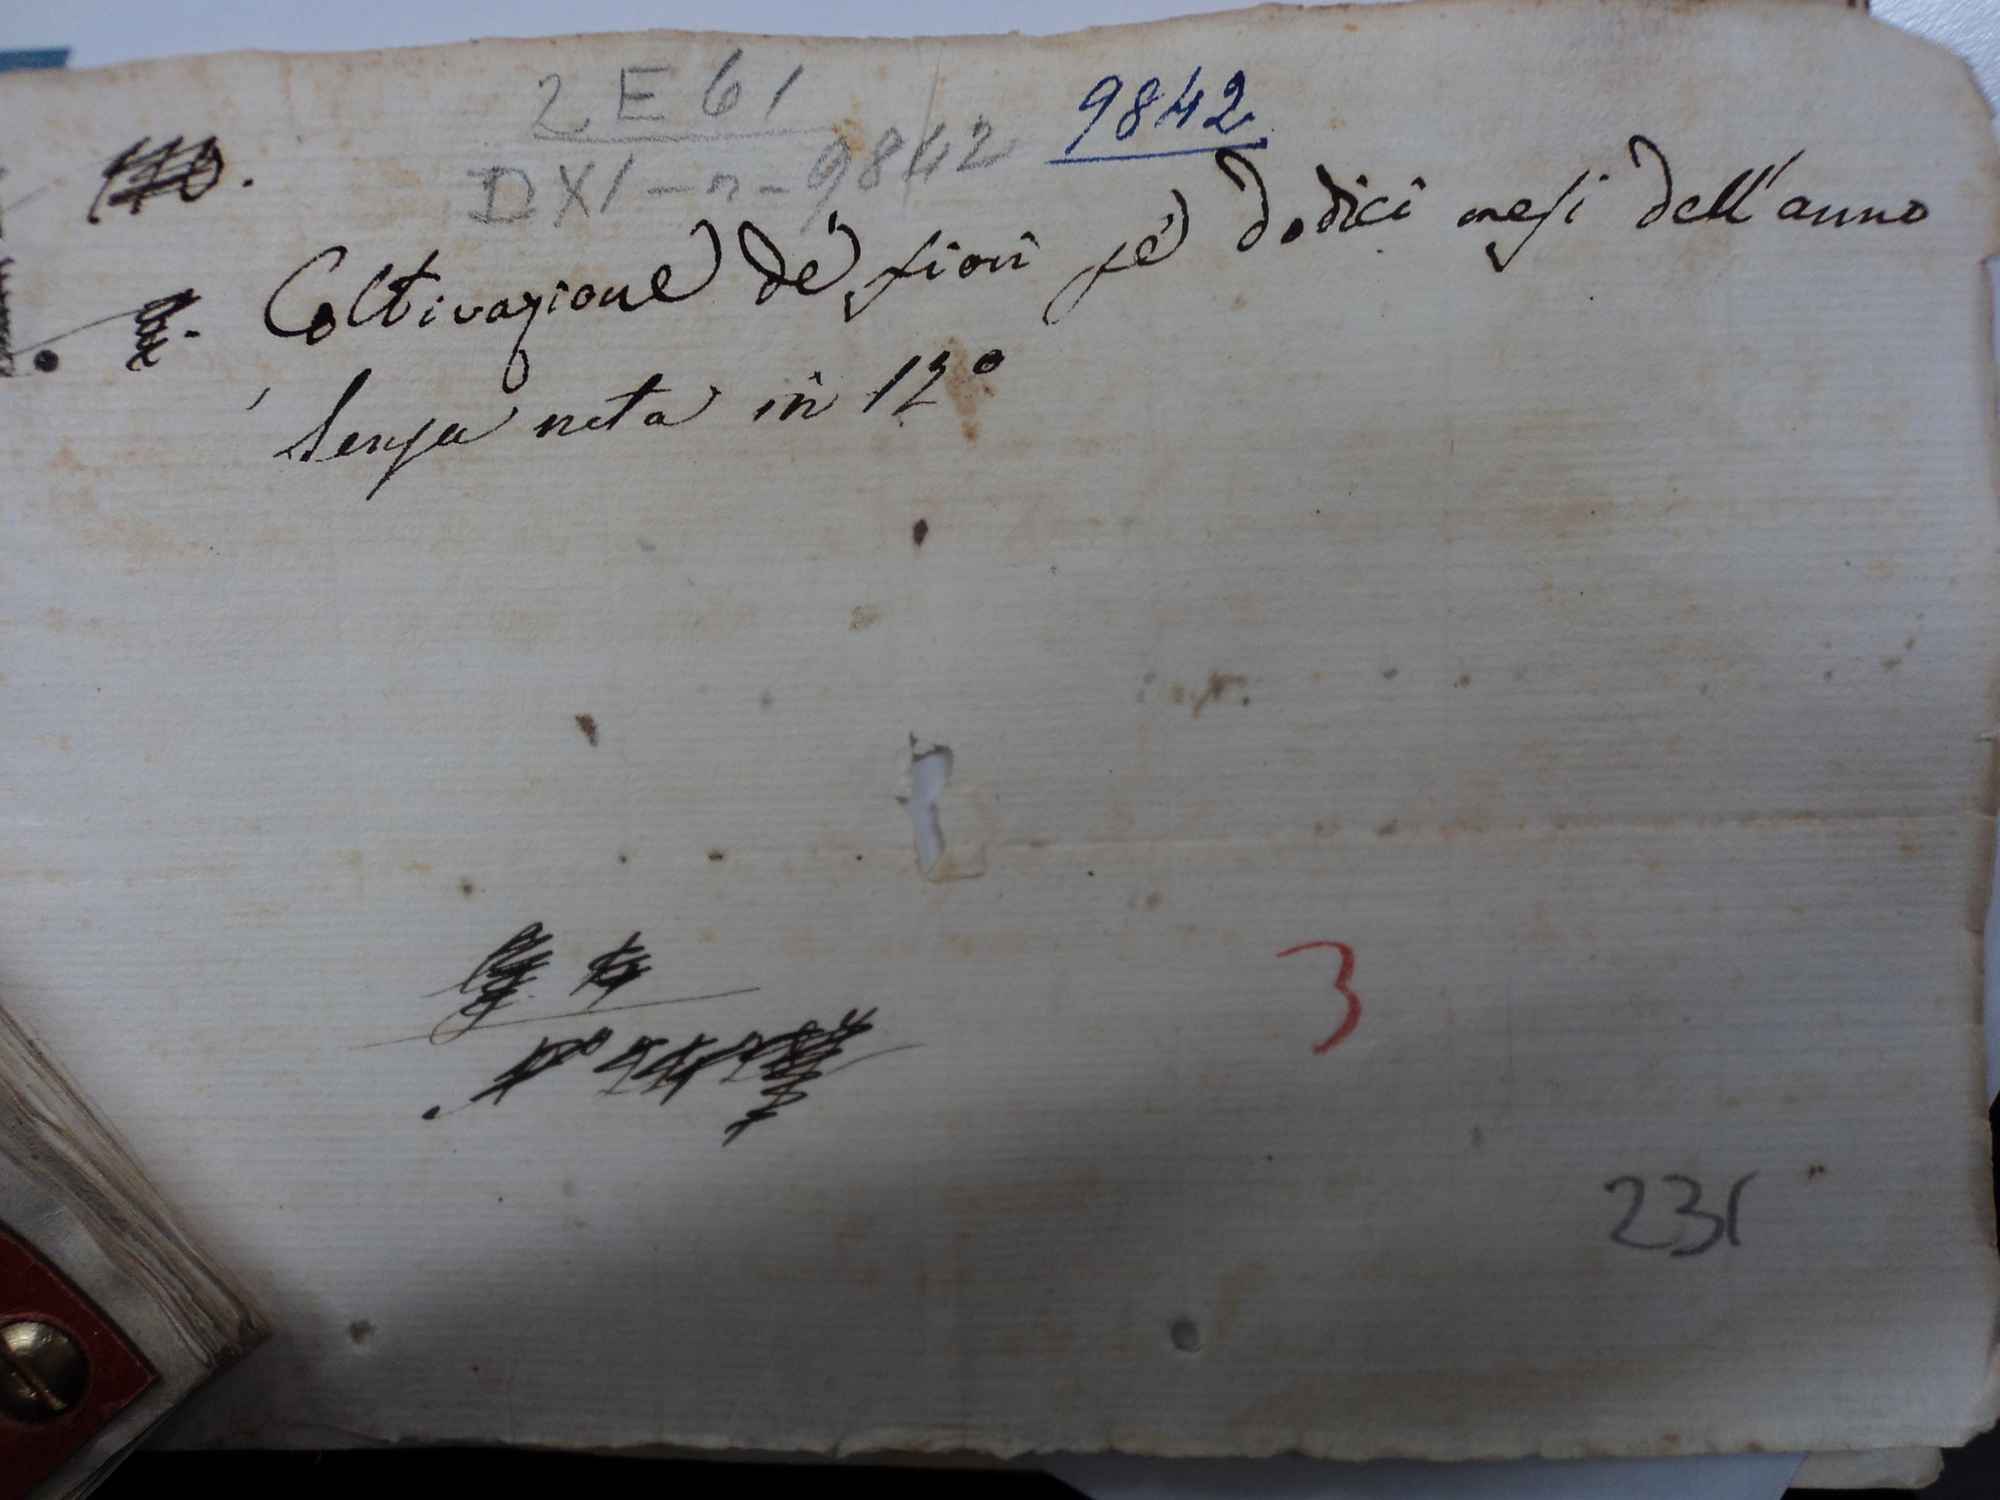 2 E 61
DXI-n-9842
9842
Coltivazione de' fiori pe' dodici mesi dell'anno
Senza nota in 12°
3
231